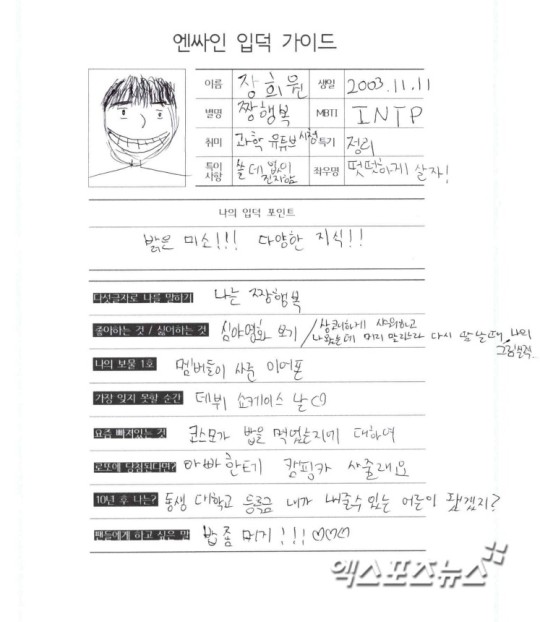 엔싸인 입덕 가이드
이름 장희원 생일 2003.11.11
별명 짱행복 MBTI INTP
취미 과학 유튜브 시청 특기 정리
특이사항 쓸데없이 진지함 좌우명 떳떳하게 살자!
나의 입덕 포인트
밝은 미소!!! 다양한 지식!!
다섯글자로 나를 말하기 나는 짱행복
좋아하는 것 / 싫어하는 것 심야영화 보기 / 상쾌하게 샤워하고
나왔는데 머리 말리라 다시 땀날때 나의
그림실력..
나의 보물 1호 멤버들이 사준 이어폰
가장 잊지 못할 순간 데뷔 쇼케이스 날♡
요즘 빠져있는 것 코스모가 밥을 먹었는지에 대하여
로또에 당첨된다면? 아빠한테 캠핑카 사줄래요
10년 후 나는? 동생 대학교 등록금 내가 내줄수있는 어른이 됐겠지?
팬들에게 하고 싶은 말 밥 좀 먹기!!! ♡♡♡
엑스포츠뉴스